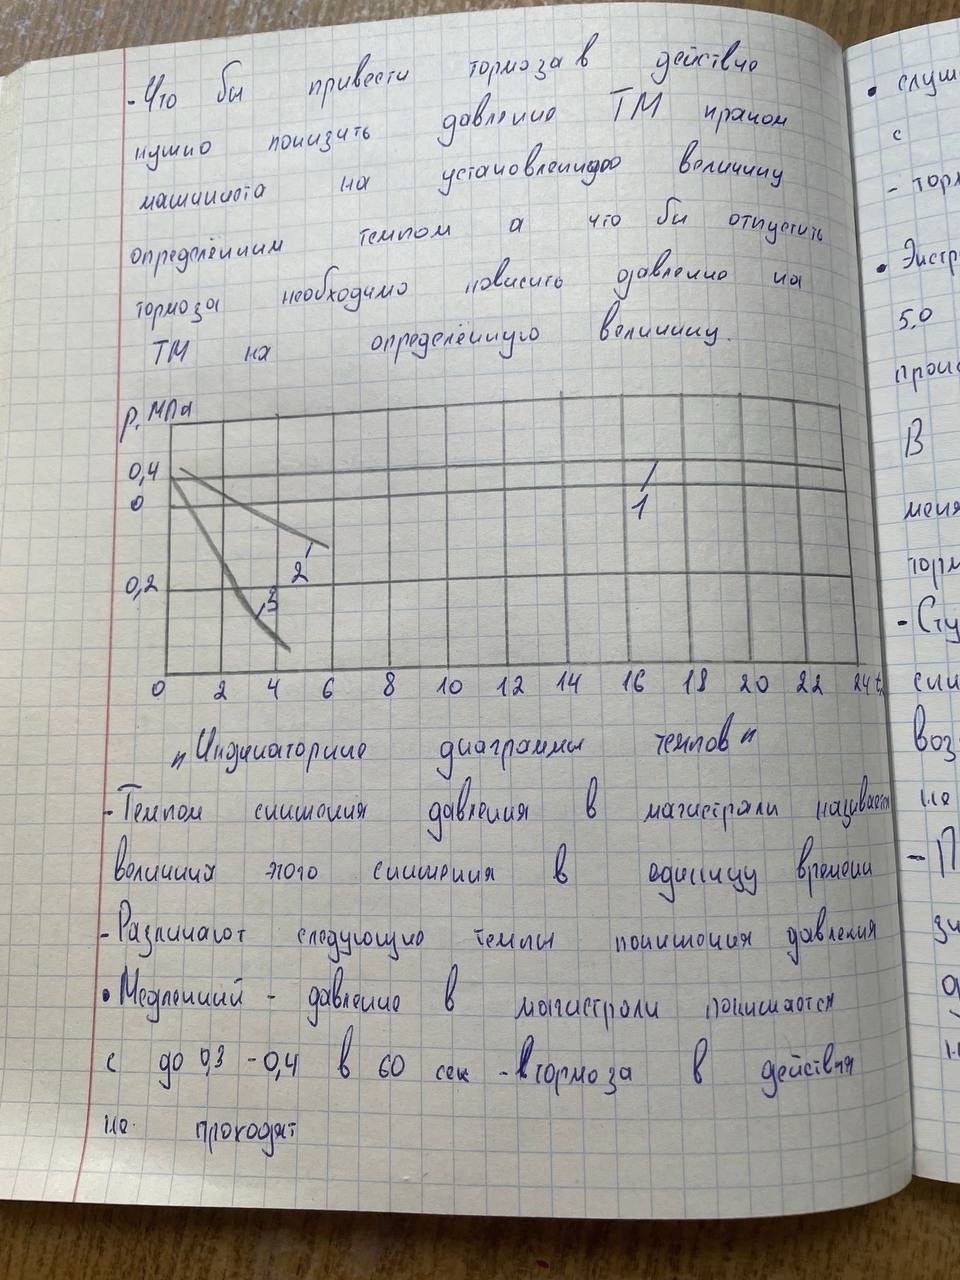 - Что бы привести тормоза в действие
нужно понизить давление ТМ краном
машиниста на установленную величину
определённим темпом а что бы отпустить
тормоза необходимо повисить давление на
ТМ на определённую величину.
р, МПа
0,4
0
1
2
0,2
3
0 2 4 6 8 10 12 14 16 18 20 22 24 t,
"Индикаторные диаграммы темпов"
- Темпом снижения давления в магистрали называется
величина этого снижения в единицу времени
- Различают следующие темпы понижения давления
• Медленний - давление в магистрали понижается
с до 0,3 - 0,4 в 60 сек - тормоза в действия
не приходят
• слуш
с
- торм
• Экстр
5.0
проис
В
меня
торм
- Сту
сни
воз
не
- П
зи